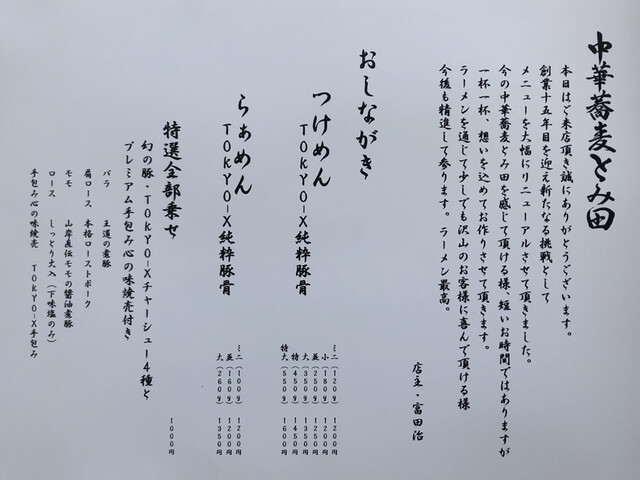 中華蕎麦とみ田
本日はご来店頂き誠にありがとうございます。
創業十五年目を迎え新たなる挑戦として
メニューを大幅にリニューアルさせて頂きました。
今の中華蕎麦とみ田を感じて頂ける様、短いお時間ではありますが
一杯一杯、想いを込めてお作りさせて頂きます。
ラーメンを通じて少しでも沢山のお客様に喜んで頂ける様
今後も精進して参ります。ラーメン最高。
店主・富田治
おしながき
つけめん
TOKYO-X純粋豚骨
ミニ(120g) 1200円
小(180g) 1200円
並(250g) 1250円
大(350g) 1350円
特(450g) 1450円
特大(550g) 1600円
らぁめん
TOKYO-X純粋豚骨
ミニ(100g) 1200円
並(160g) 1200円
大(260g) 1350円
特選全部乗せ
幻の豚・TOKYO-Xチャーシュー4種と
プレミアム手包み心の味焼売付き
1000円
バラ 王道の煮豚
肩ロース 本格ローストポーク
モモ 山岸直伝モモの醤油煮豚
ロース しっとり火入(下味塩のみ)
手包み心の味焼売 TOKYO-X手包み